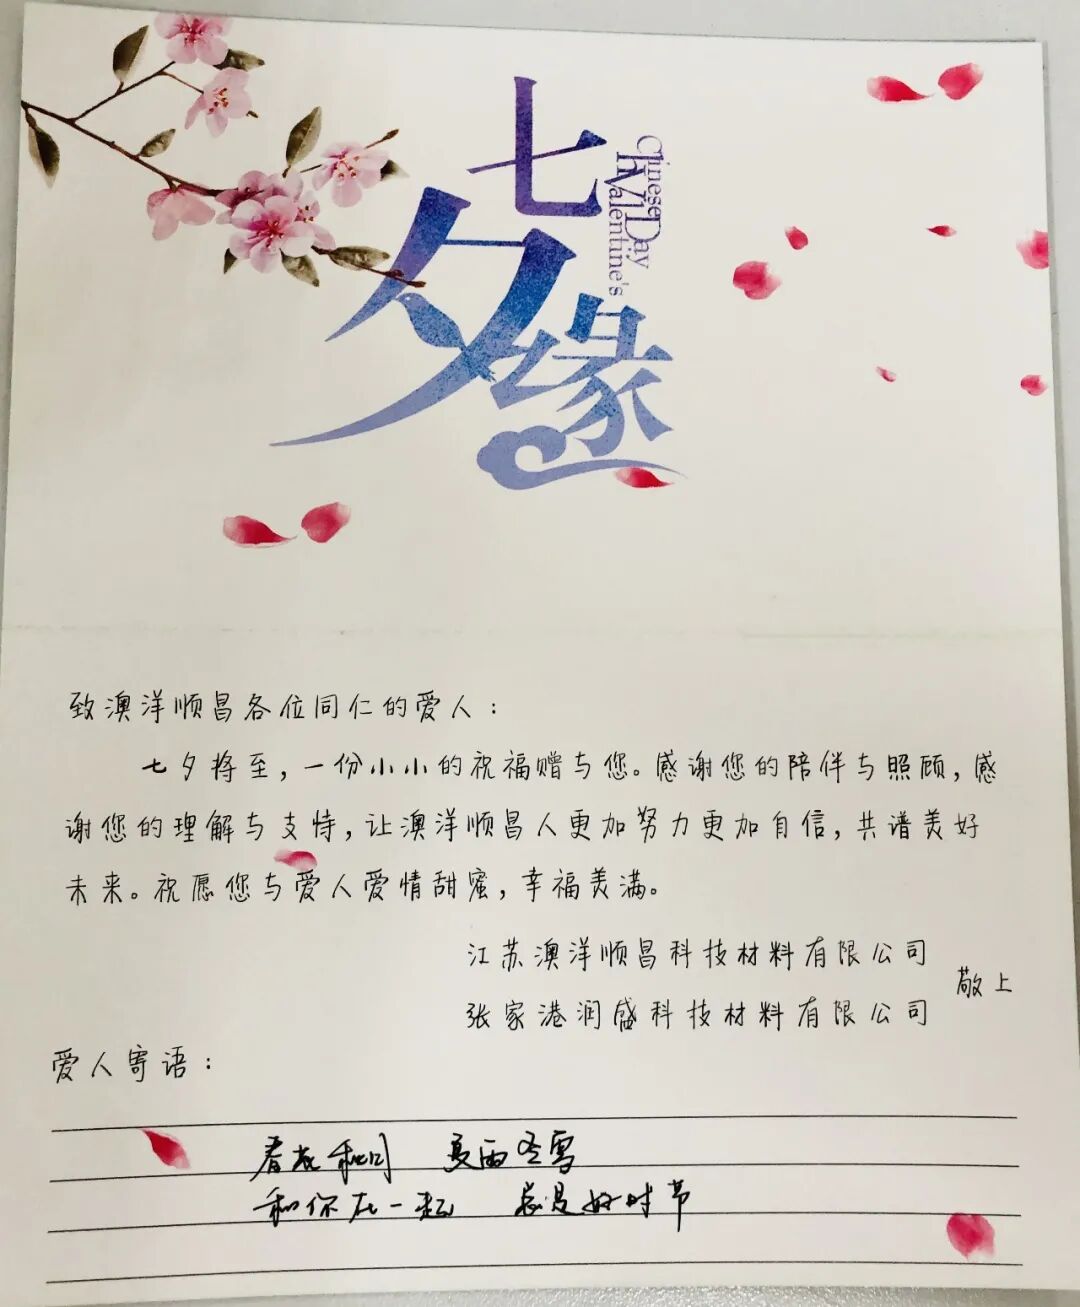 七夕缘
Chinese
Valentine's
Day
致澳洋顺昌各位同仁的爱人：
七夕将至，一份小小的祝福赠与您。感谢您的陪伴与照顾，感
谢您的理解与支持，让澳洋顺昌人更加努力更加自信，共谱美好
未来。祝愿您与爱人爱情甜蜜，幸福美满。
江苏澳洋顺昌科技材料有限公司
张家港润盛科技材料有限公司
敬上
爱人寄语：
春花秋月 夏雨冬雪
和你在一起 总是好时节